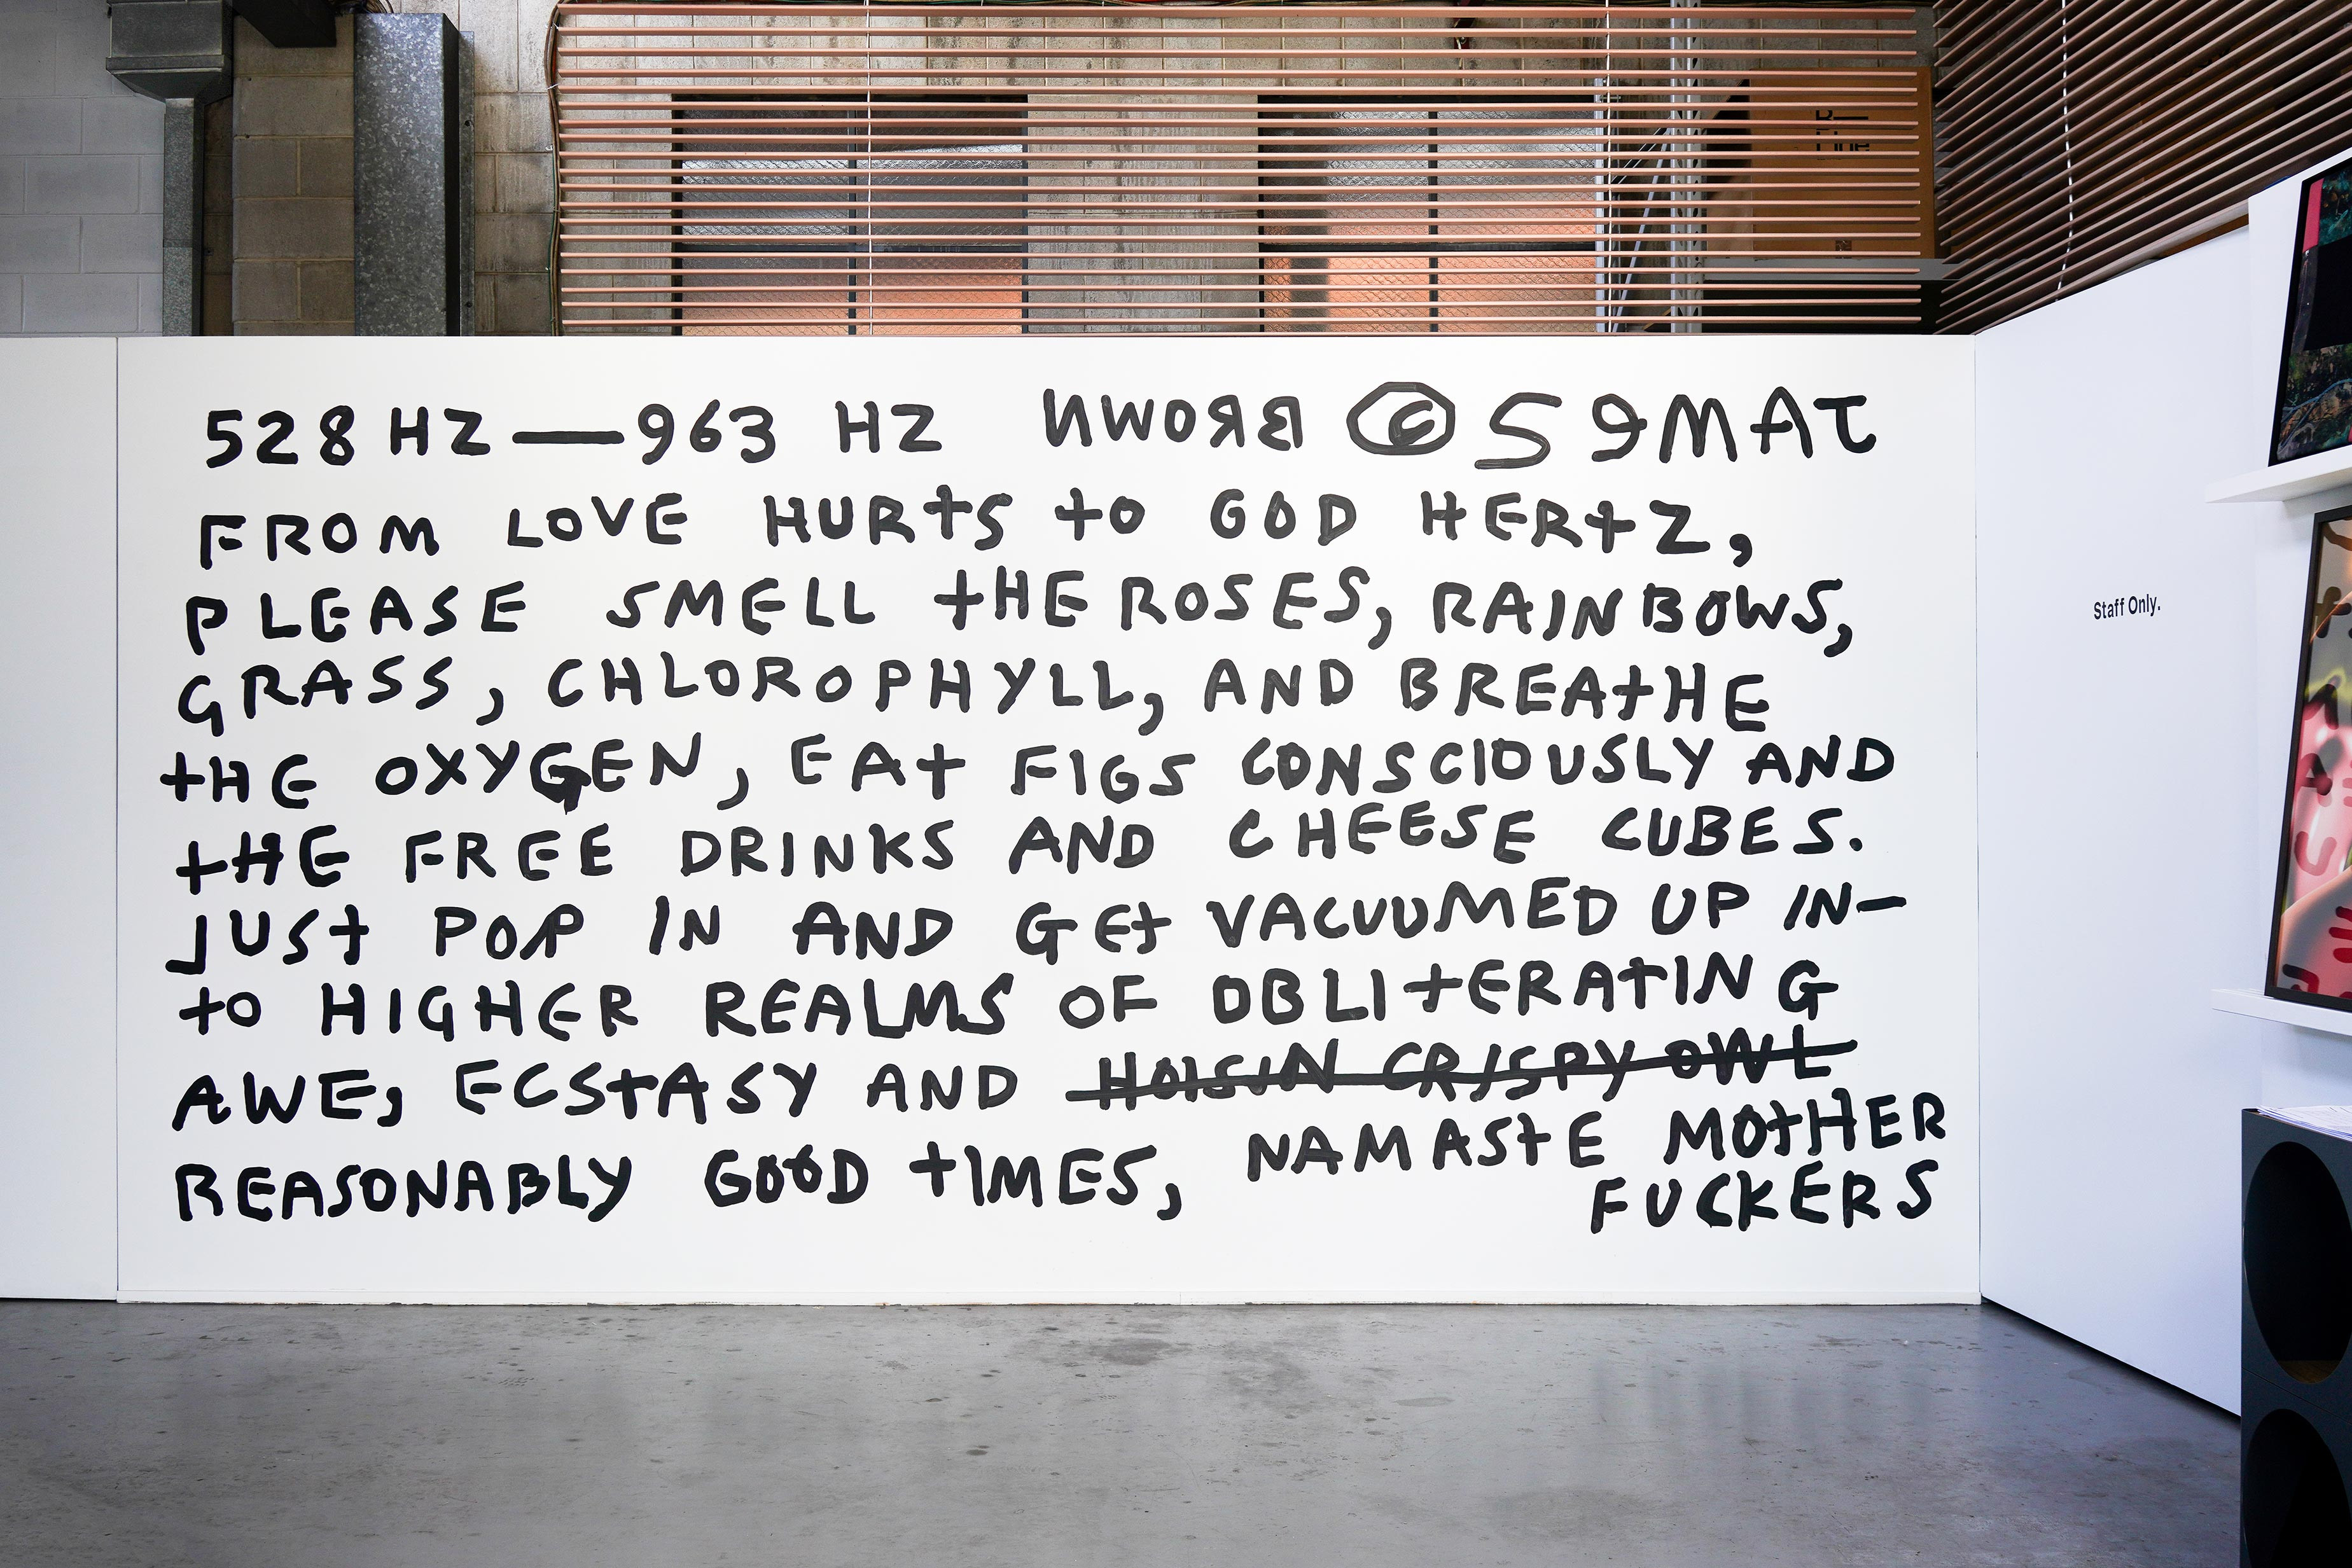 528 HZ — 963 HZ NWORB © S9MAT
FROM LOVE HURTS TO GOD HERTZ,
PLEASE SMELL THE ROSES, RAINBOWS,
GRASS, CHLOROPHYLL, AND BREATHE
THE OXYGEN, EAT FIGS CONSCIOUSLY AND
THE FREE DRINKS AND CHEESE CUBES.
JUST POP IN AND GET VACUUMED UP IN-
TO HIGHER REALMS OF OBLITERATING
AWE, ECSTASY AND HOISIN CRISPY OWL
REASONABLY GOOD TIMES, NAMASTE MOTHER
FUCKERS
Staff Only.